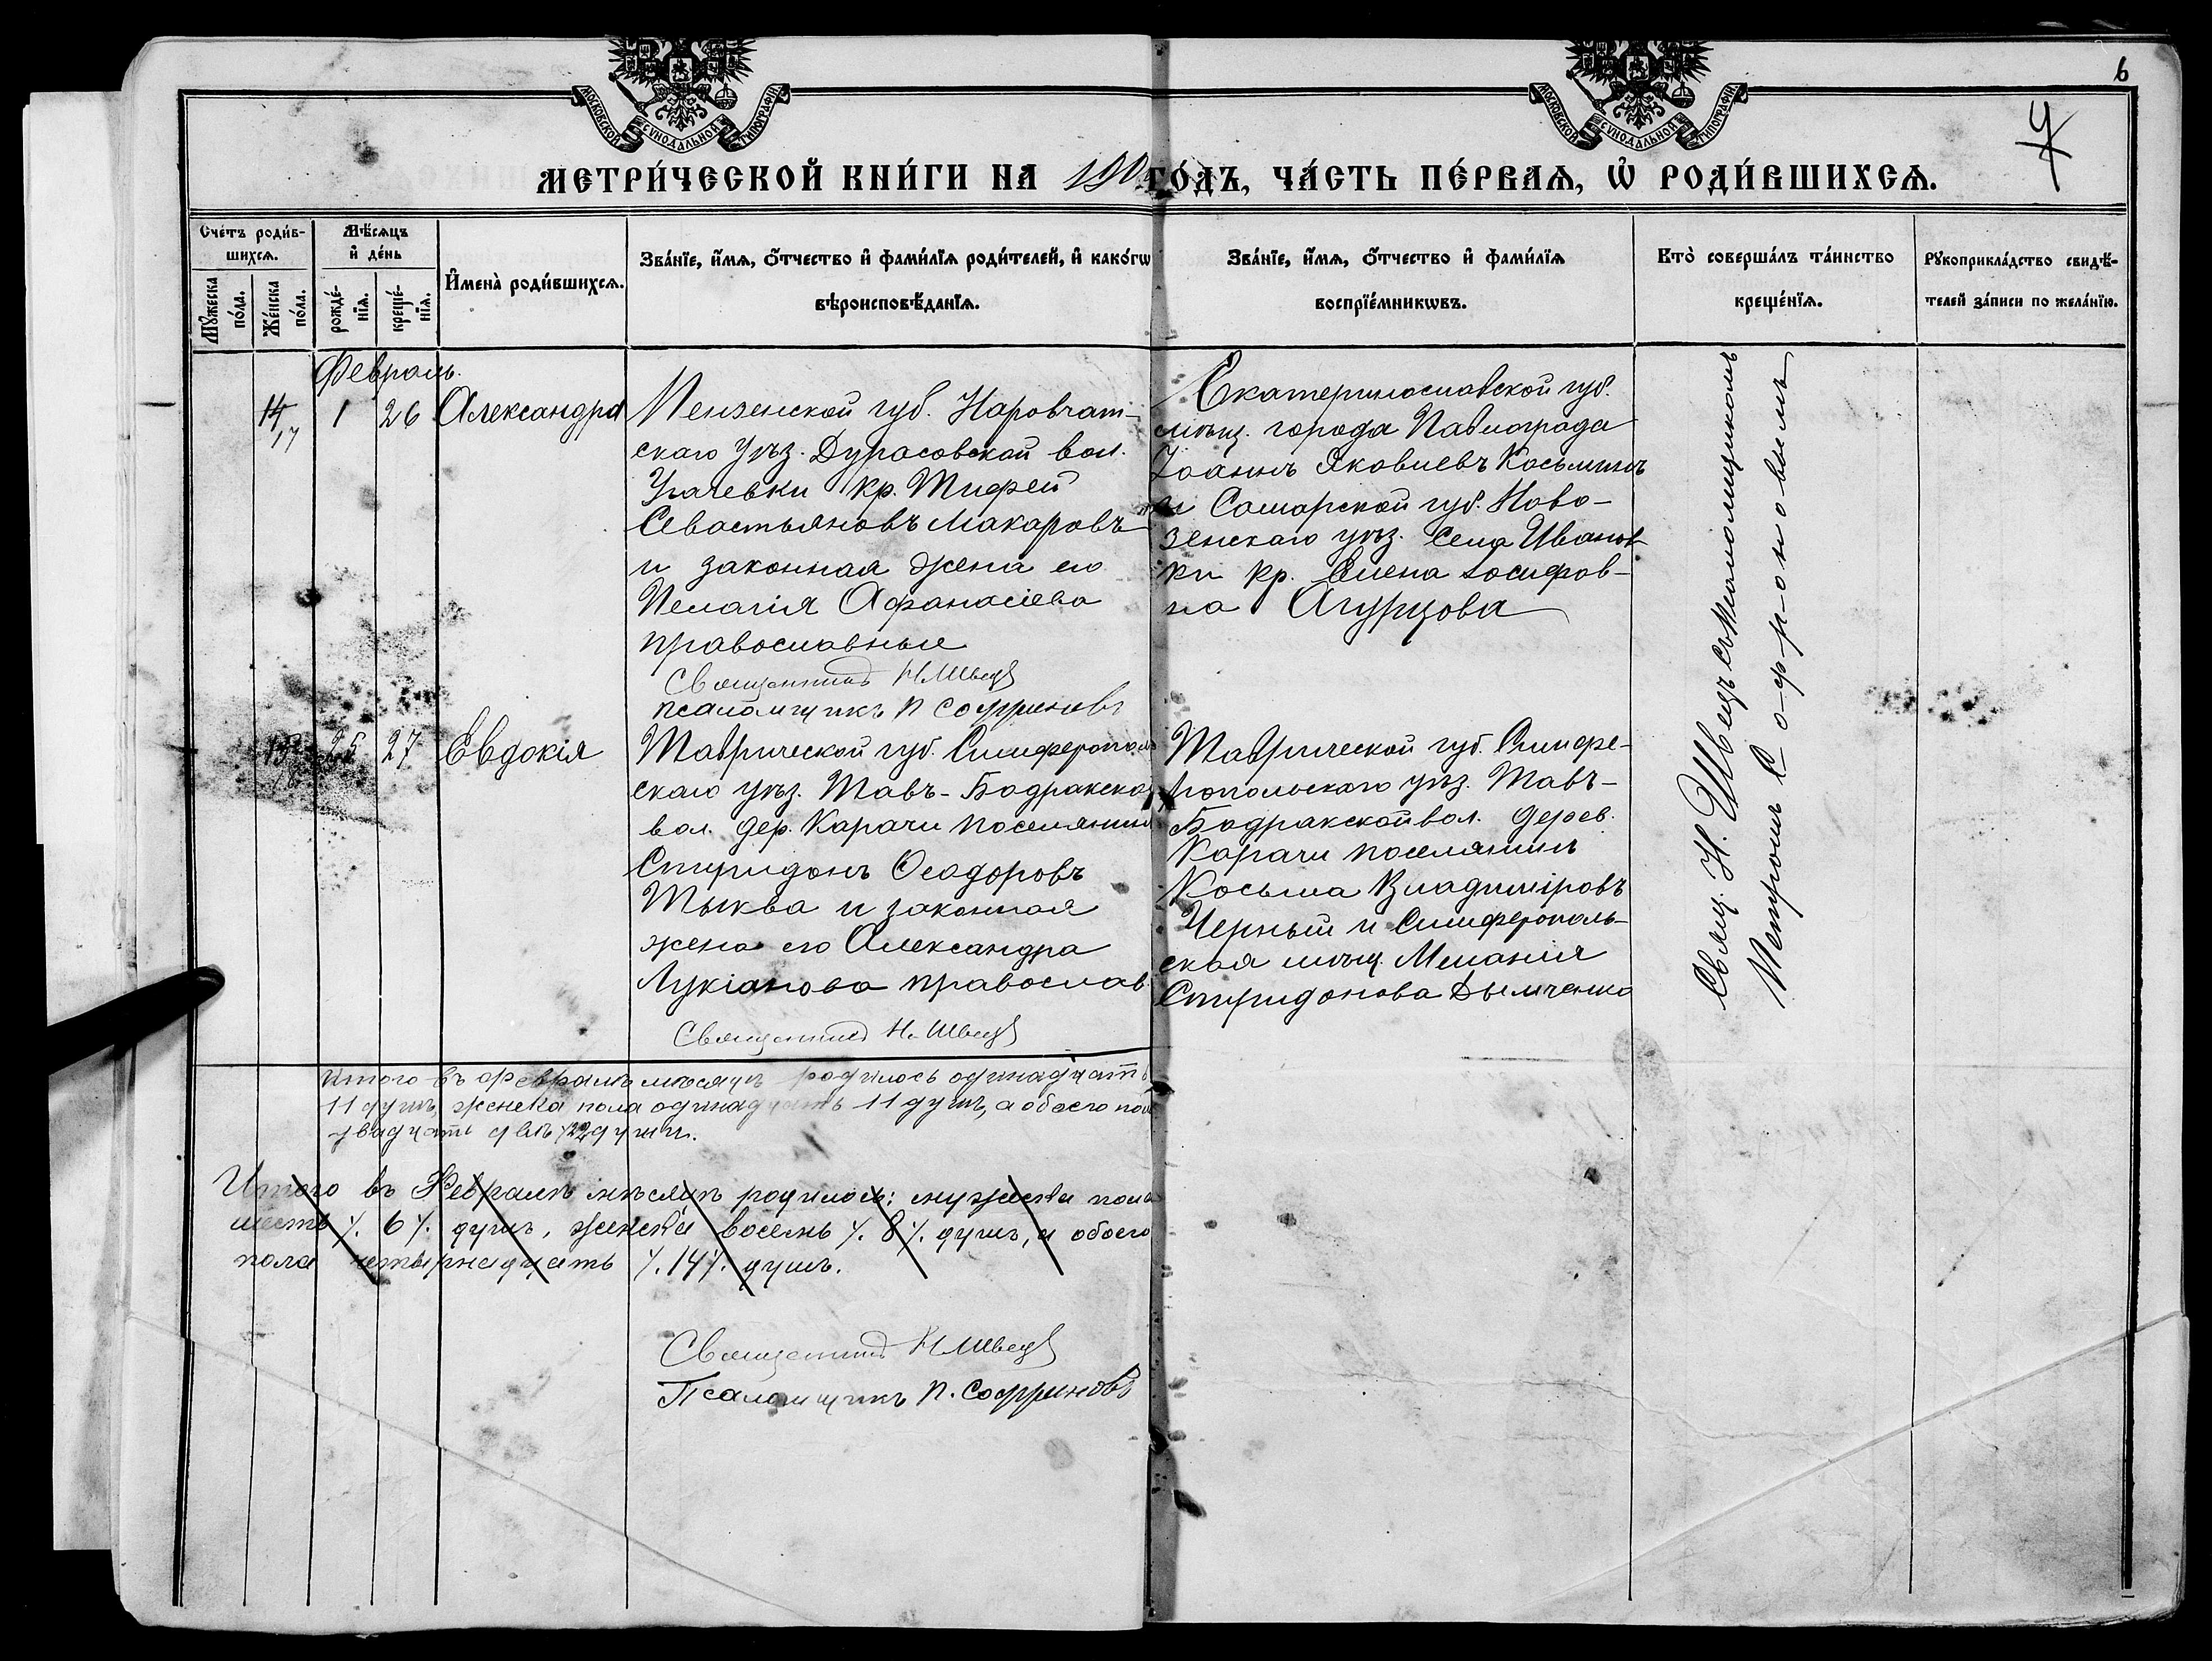 6
7
МОСКОВСКОЙ СѴНОДАЛЬНОЙ ТИПОГРАФІИ
МОСКОВСКОЙ СѴНОДАЛЬНОЙ ТИПОГРАФІИ
МЕТРИ́ЧЕСКОЙ КНИ́ГИ НА 190 ГО́ДЪ, ЧА́СТЬ ПЕ́РВАѦ, Ѡ҆ РОДИ́ВШИХСѦ.
Сче́тъ роди́в-
шихсѧ.
Мꙋ́жеска по́ла.
Же́нска по́ла.
Мѣ́сѧцъ
и҆ де́нь
рожде́-нїѧ.
креще́-нїѧ.
И҆мена̀ роди́вшихсѧ.
Зва́нїе, и҆́мѧ, ѻ҆́тчество и҆ фами́лїѧ роди́телей, и҆ како́гѡ
вѣроисповѣ́данїѧ.
Зва́нїе, и҆́мѧ, ѻ҆́тчество и҆ фами́лїѧ
воспрїе́мникѡвъ.
Кто̀ соверша́лъ та́инство
креще́нїѧ.
Рꙋкоприкла́дство свидѣ́-
телей за́писи по жела́нїю.
Февраль.
14
17
1 26 Александра
Пензенской губ. Наровчат-
скаго уѣз. Дурасовской вол.
кр. Тифей
Севастьяновъ Макаровъ
и законная жена его
Пелагія Афанасіева
православные
Священникъ Н. Швецъ
псаломщикъ П Софроновъ
Екатеринославской губ.
мѣщ. города Павлограда
Іоаннъ Яковлевъ Косьминъ
и Самарской губ. Ново-
зенскаго уѣз. села Иванов
ки кр. Елена Іосифов-
на Агурцова
25 27 Евдокія
Таврической губ. Симферополь
скаго уѣз. Тавъ-Бодракской
вол. дер. Карачи поселянинъ
Спиридонъ Ѳеодоровъ
Тыква и законная
жена его Александра
Лукіанова православ.
Священникъ Н. Швецъ
Таврической губ. Симфе-
ропольскаго уѣз. Тавъ-
Бодракской вол. дерев.
Карачи поселянинъ
Косьма Владиміровъ
Черный и Симферополь-
ская мѣщ. Меланія
Спиридонова Дымченко
Свящ. Н. Швецъ съ псаломщикомъ
Петромъ Софроновымъ
Итого въ февралѣ мѣсяцѣ родилось одинадцать
11 душъ, женска пола одинадцать 11 душъ, а обоего пола
двадцать двѣ 22 души.
Итого въ Февралѣ мѣсяцѣ родилось: мужеска пола
шесть ⁒ 6 ⁒ душъ, женска восемь ⁒ 8 ⁒ душъ, а обоего
пола четырнадцать ⁒ 14 ⁒ душъ.
Священникъ Н. Швецъ
Псаломщикъ П. Софроновъ